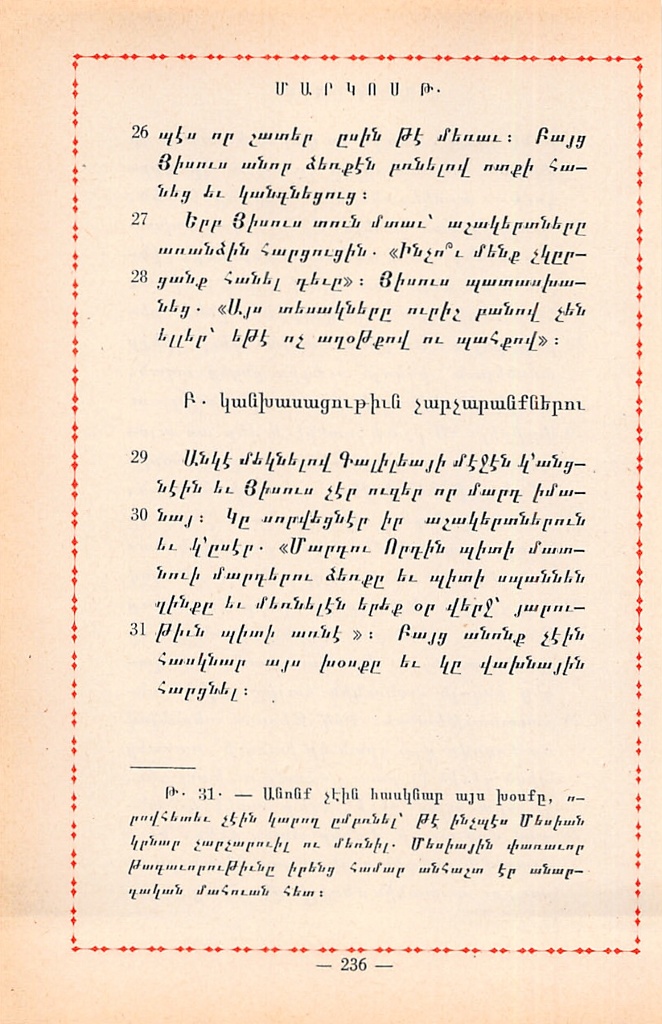 ՄԱՐԿՈՍ Թ.
26 պէս որ շատեր ըսին թէ մեռաւ։ Բայց
Յիսուս անոր ձեռքէն բռնելով ոտքի հա—
նեց եւ կանգնեցուց։
27 Երբ Յիսուս տուն մտաւ՝ աշակերտները
առանձին հարցուցին. «Ինչո՞ւ մենք չկըր—
28 ցանք հանել դեւը»։ Յիսուս պատասխա—
նեց. «Այս տեսակները ուրիշ բանով չեն
ելլեր՝ եթէ ոչ աղօթքով ու պահքով»։
Բ. կանխասացութիւն չարչարանքներու
29 Անկէ մեկնելով Գալիլեայի մէջէն կ՚անց—
նէին եւ Յիսուս չէր ուզեր որ մարդ իմա—
30 նայ։ Կը սորվեցնէր իր աշակերտներուն
եւ կ՚ըսէր. «Մարդու Որդին պիտի մատ—
նուի մարդերու ձեռքը եւ պիտի սպաննեն
զինքը եւ մեռնելէն երեք օր վերջ՝ յարու—
31 թիւն պիտի առնէ »։ Բայց անոնք չէին
հասկնար այս խօսքը եւ կը վախնային
հարցնել։
Թ. 31. — Անոնք չէին հասկնար այս խօսքը, ո—
րովհետեւ չէին կարող ըմբռնել՝ թէ ինչպէս Մեսիան
կրնար չարչարուիլ ու մեռնիլ. Մեսիային փառաւոր
թագաւորութիւնը իրենց համար անհաշտ էր անար—
գական մահուան հետ։
— 236 —